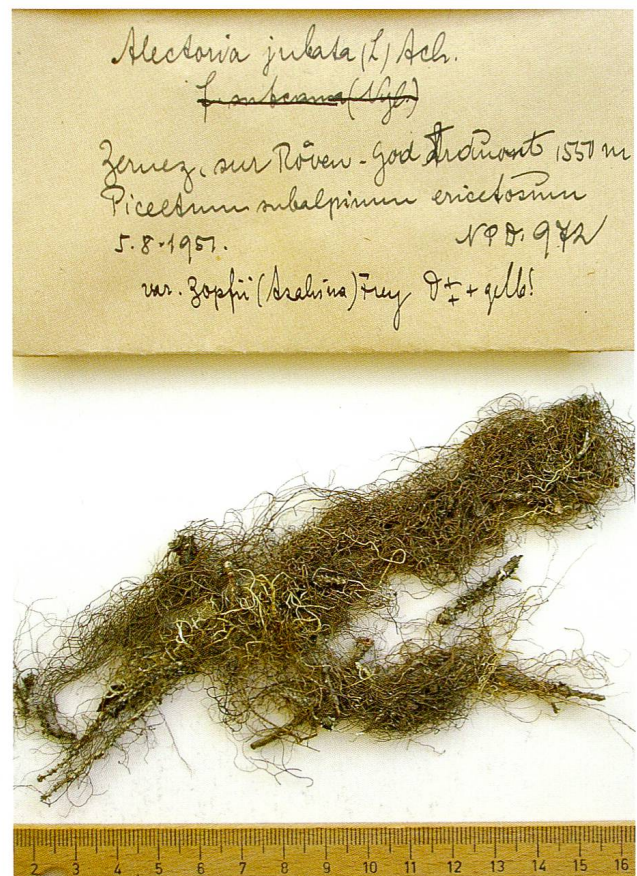 Alectoria jubata (L) Ach.
f. subcana (Nyl.)
Zernez, sur Röven - God 1550 m
Piceetum subalpinum ericetosum
5.8.1951. NPD. 972
var. Zopfii (Asahina) Frey D ‡ + gelb!
2 3 4 5 6 7 8 9 10 11 12 13 14 15 16